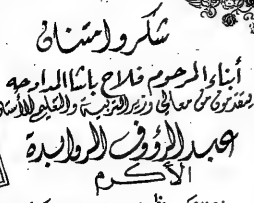 شكر وامتنان
أبناء المرحوم فلاح باشا المدادحه
يتقدمون من معالي وزير التربية والتعليم الأستاذ
عبد الرؤوف الروابدة
الأكرم